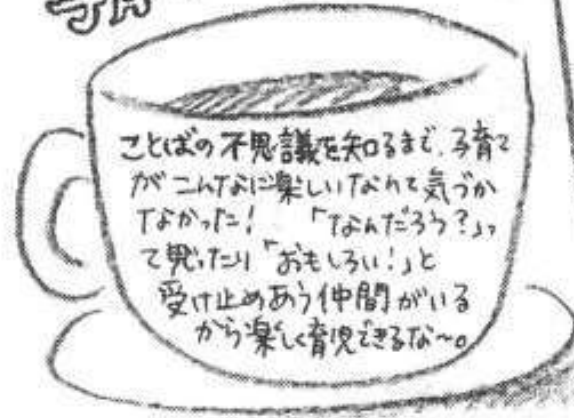 ことばの不思議を知るまで、子育て
がこんなに楽しいなんて気づか
なかった！ 「なんだろう？」っ
て思ったり「おもしろい！」と
受け止めあう仲間がいる
から楽しく育児できるな〜。